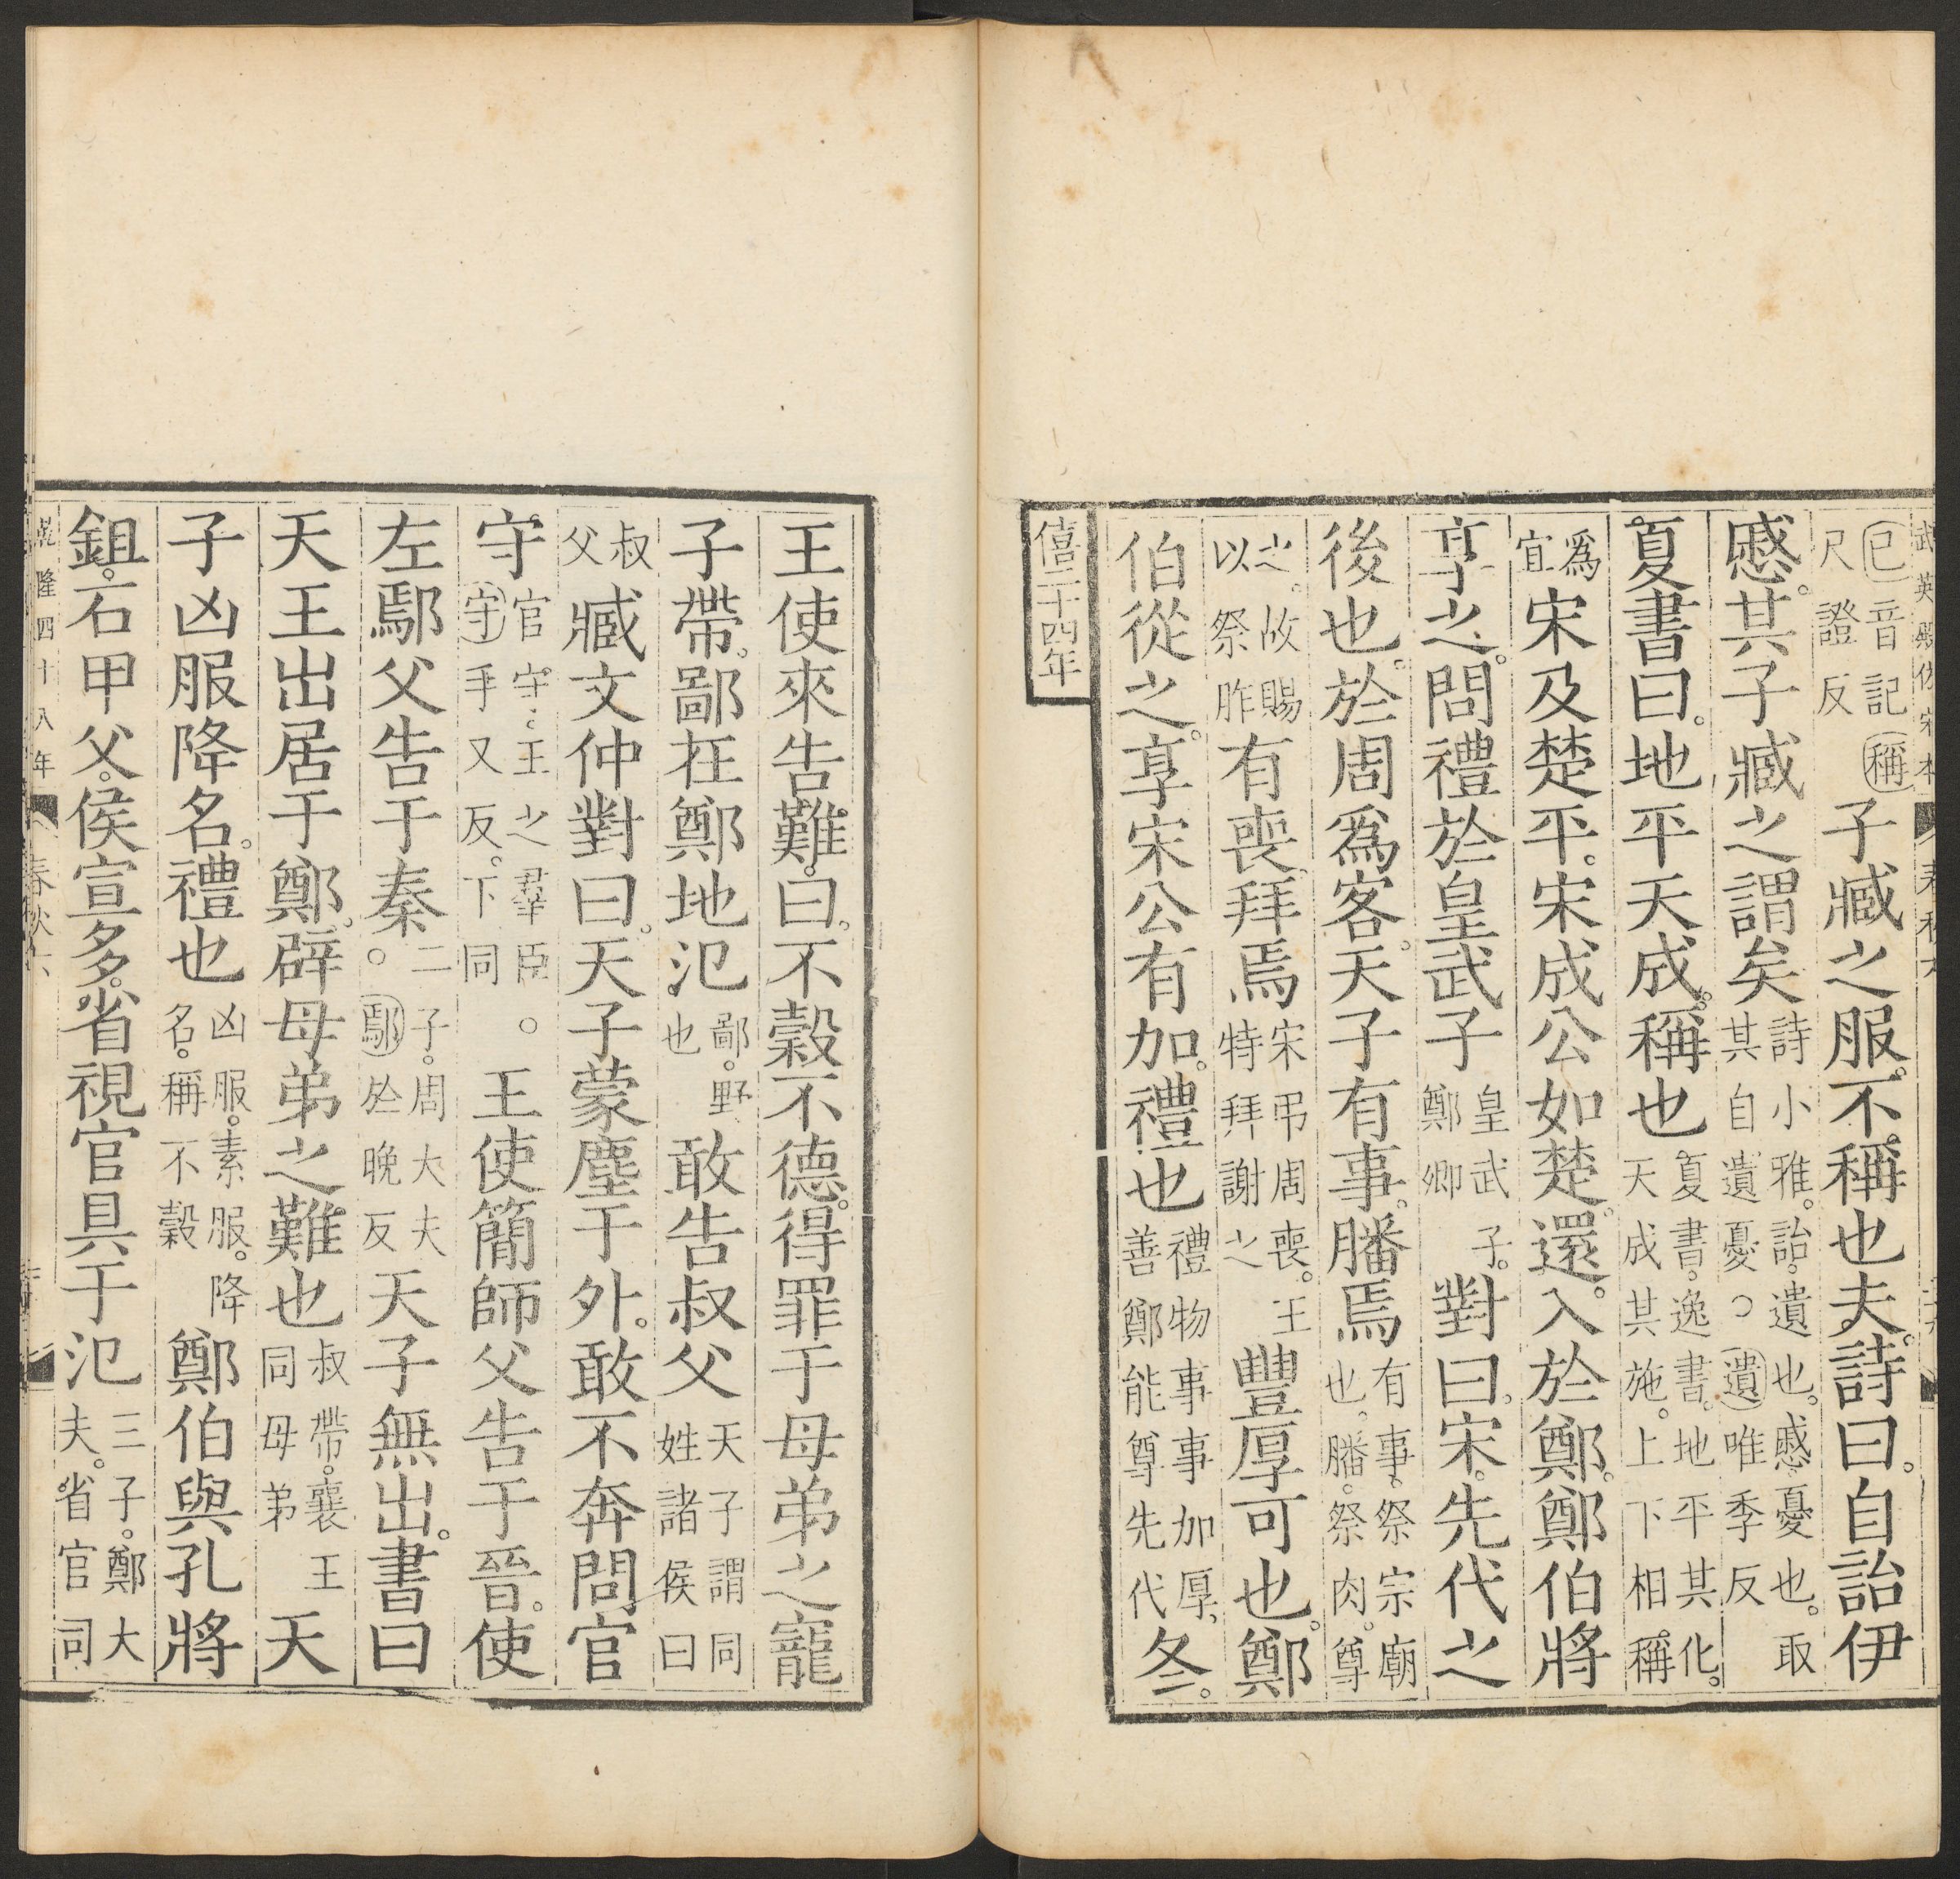 武英殿仿宋本
春秋六
己音記稱
尺證反
子臧之服不稱也夫詩曰自詒伊
慼其子臧之謂矣
詩小雅詒遺也慼憂也取
其自遺憂○遺唯季反
夏書曰地平天成稱也
夏書逸書地平其化
天成其施上下相稱
爲
宜
宋及楚平宋成公如楚還入於鄭鄭伯將
享之問禮於皇武子
皇武子
鄭卿
對曰宋先代之
後也於周爲客天子有事膰焉
有事祭宗廟
也膰祭肉尊
之故賜
以祭胙
有喪拜焉
宋弔周喪王
特拜謝之
豐厚可也鄭
伯從之享宋公有加禮也
禮物事事加厚
善鄭能尊先代
冬
僖二十四年
王使來告難曰不穀不德得罪于母弟之寵
子帶鄙在鄭地氾
鄙野
也
敢告叔父
天子謂同
姓諸侯曰
叔
父
臧文仲對曰天子蒙塵于外敢不奔問官
守
官守王之羣臣○
守手又反下同
王使簡師父告于晉使
左鄢父告于秦
二子周大夫
○鄢於晚反
天子無出書曰
天王出居于鄭辟母弟之難也
叔帶襄王
同母弟
天
子凶服降名禮也
凶服素服降
名稱不穀
鄭伯與孔將
鉏石甲父侯宣多省視官具于氾
三子鄭大
夫省官司
乾隆四十八年
春秋六